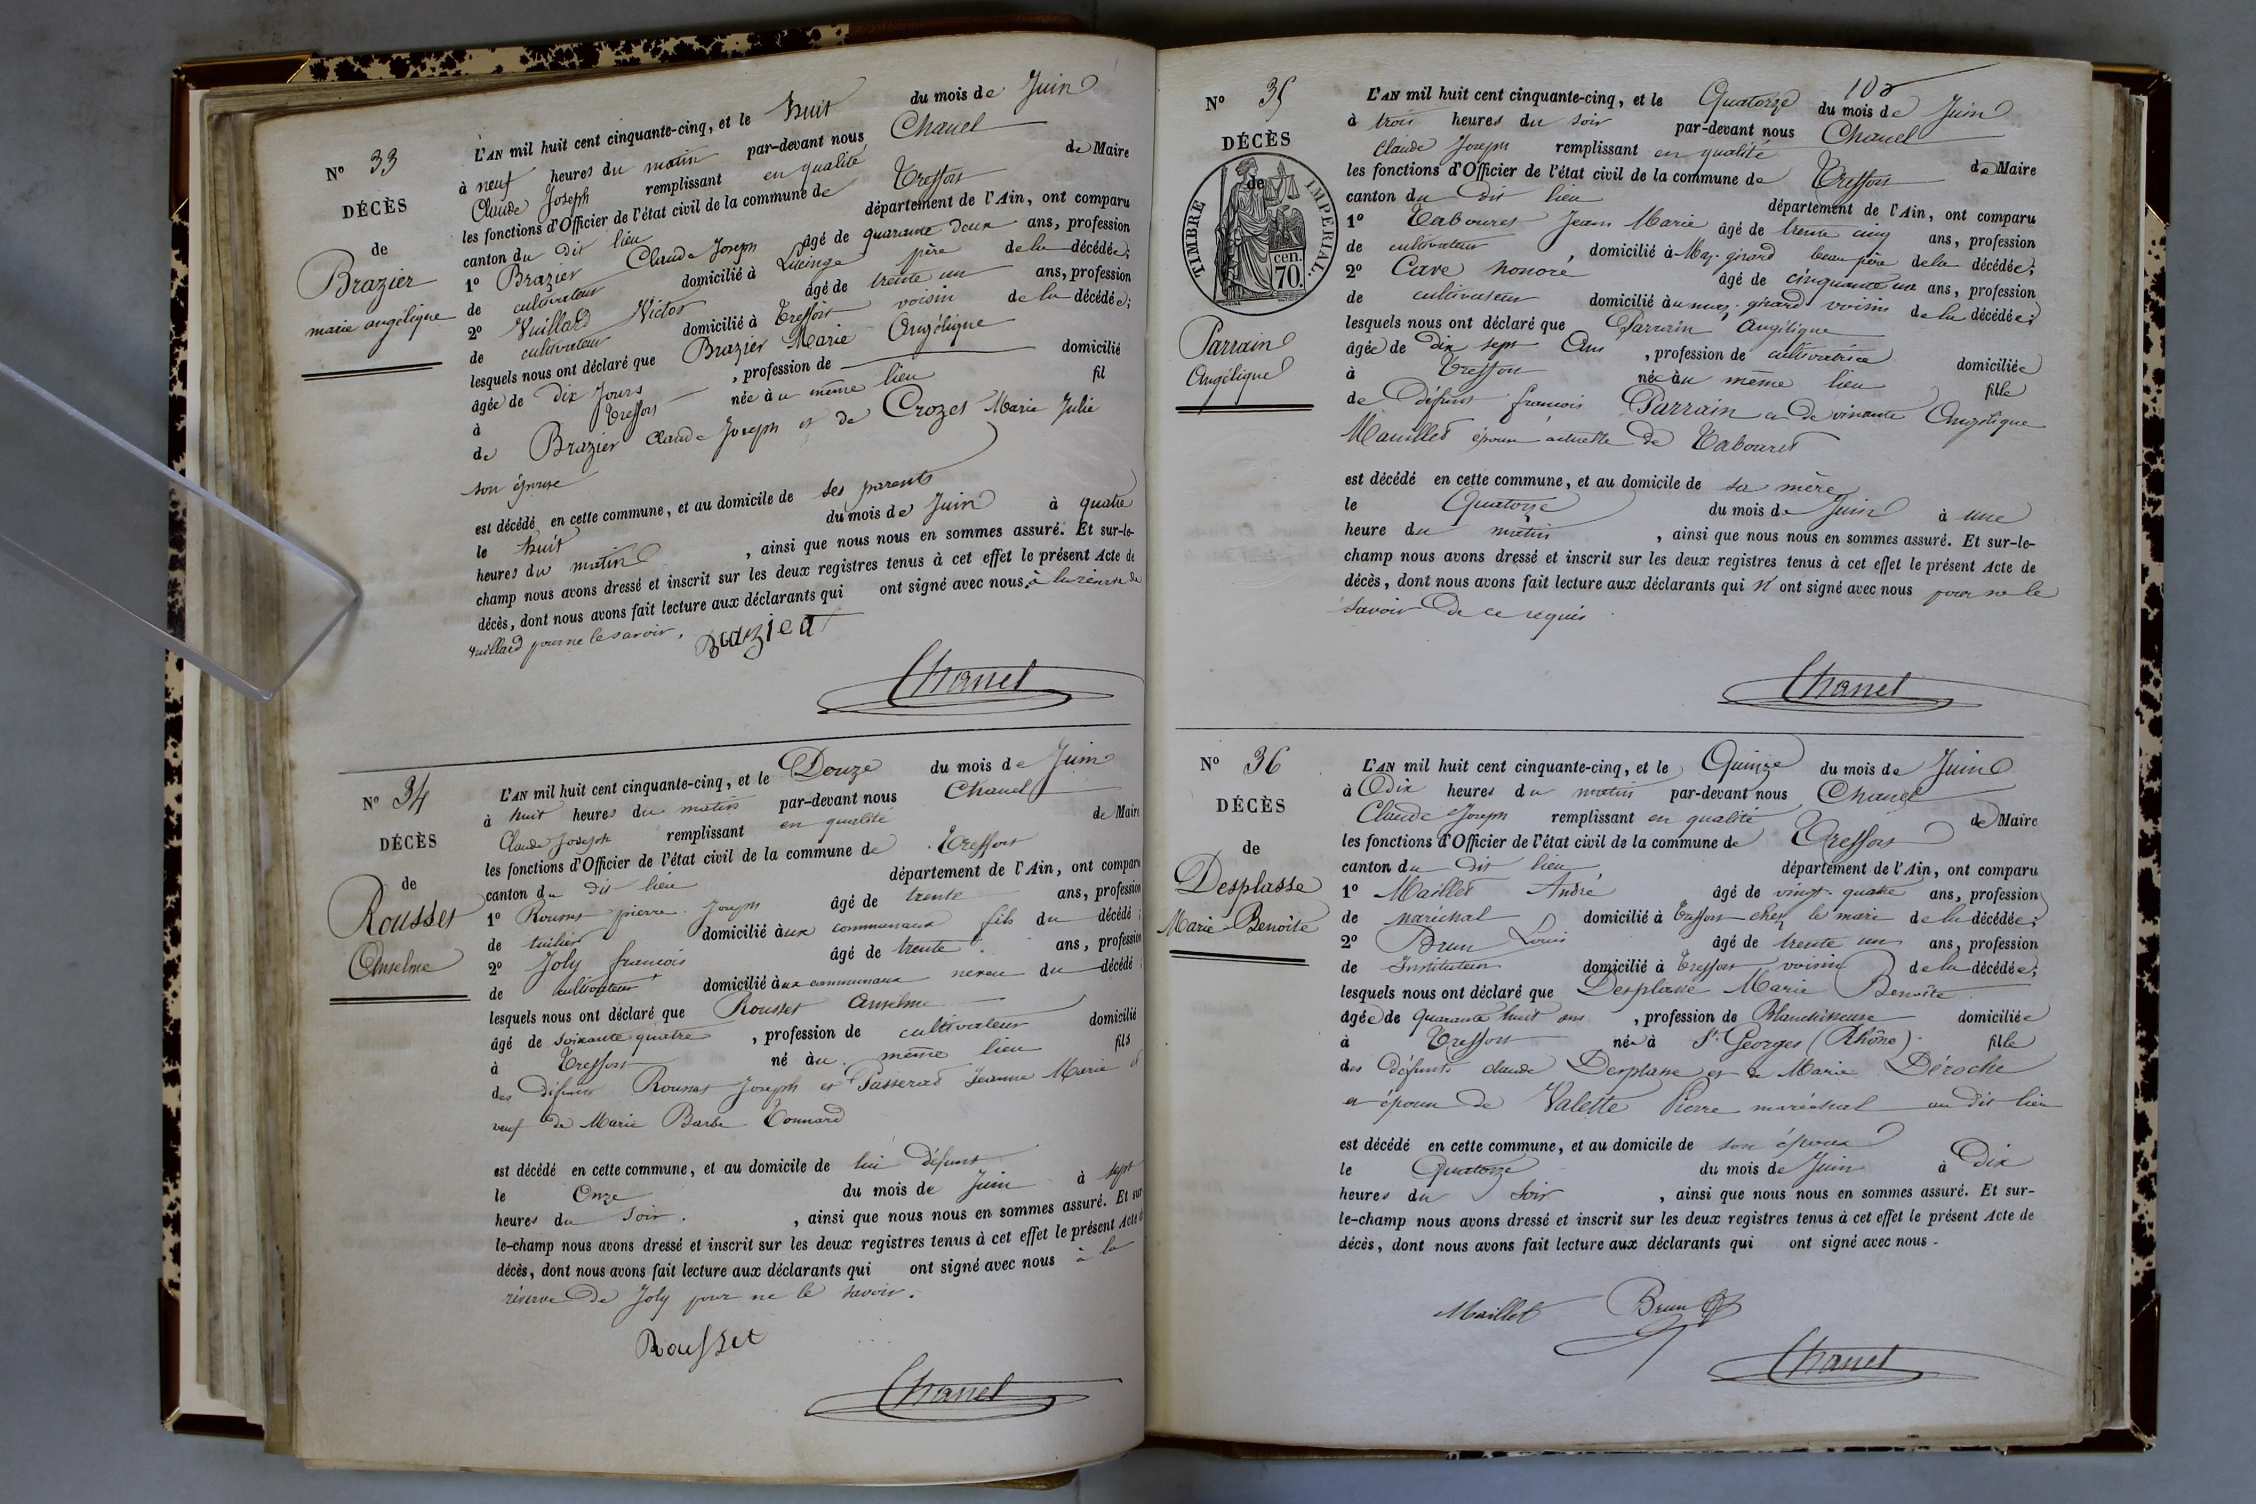 N° 33
DÉCÈS
de
Brazier
marie angélique
L'AN mil huit cent cinquante-cinq, et le huit du mois de Juin
à neuf heures du matin par-devant nous Chanel
Claude Joseph remplissant en qualité de Maire
les fonctions d'Officier de l'état civil de la commune de Treffort
canton du dit lieu département de l'Ain, ont comparu
1° Brazier Claude Joseph âgé de quarante deux ans, profession
de cultivateur domicilié à Lucinge père de la décédée;
2° Vuillard Victor âgé de trente un ans, profession
de cultivateur domicilié à Treffort voisin de la décédée;
lesquels nous ont déclaré que Brazier Marie Angélique
âgée de dix jours, profession de domicilié
à Treffort née au même lieu fil
de Brazier Claude Joseph et de Crozet Marie Julie
son épouse
est décédé en cette commune, et au domicile de ses parents
le huit du mois de Juin à quatre
heures du matin, ainsi que nous nous en sommes assuré. Et sur-le-
champ nous avons dressé et inscrit sur les deux registres tenus à cet effet le présent Acte de
décès, dont nous avons fait lecture aux déclarants qui ont signé avec nous à la réserve de
Vuillard pour ne le savoir.
Brazier
Chanel
N° 34
DÉCÈS
de
Rousset
Anselme
L'AN mil huit cent cinquante-cinq, et le Douze du mois de Juin
à huit heures du matin par-devant nous Chanel
Claude Joseph remplissant en qualité de Maire
les fonctions d'Officier de l'état civil de la commune de Treffort
canton du dit lieu département de l'Ain, ont comparu
1° Rousset pierre Joseph âgé de trente ans, profession
de tuilier domicilié aux communaux fils du décédé;
2° Joly francois âgé de trente ans, profession
de cultivateur domicilié aux communaux neveu du décédé;
lesquels nous ont déclaré que Rousset Anselme
âgé de soixante quatre, profession de cultivateur domicilié
à Treffort né au même lieu fils
des défunts Rousset Joseph et Passerat Jeanne Marie et
veuf de Marie Barbe Tonnard
est décédé en cette commune, et au domicile de lui défunt
le Onze du mois de Juin à sept
heures du soir, ainsi que nous nous en sommes assuré. Et sur
le-champ nous avons dressé et inscrit sur les deux registres tenus à cet effet le présent Acte de
décès, dont nous avons fait lecture aux déclarants qui ont signé avec nous à la
réserve de Joly pour ne le savoir.
Rousset
Chanel
105
N° 35
DÉCÈS
de
TIMBRE IMPERIAL.
cen.
70.
Parrain
Angélique
L'AN mil huit cent cinquante-cinq, et le Quatorze du mois de Juin
à trois heures du soir par-devant nous Chanel
Claude Joseph remplissant en qualité de Maire
les fonctions d'Officier de l'état civil de la commune de Treffort
canton du dit lieu département de l'Ain, ont comparu
1° Tabouret Jean Marie âgé de trente cinq ans, profession
de cultivateur, domicilié à Maz-girard beau père de la décédée;
2° Cave honoré âgé de cinquante un ans, profession
de cultivateur domicilié au maz-girard voisin de la décédée;
lesquels nous ont déclaré que Parrain Angélique
âgée de dix sept ans, profession de cultivatrice domiciliée
à Treffort née au même lieu fille
de défunt francois Parrain et de vivante Angélique
Maullet épouse actuelle de Tabouret
est décédé en cette commune, et au domicile de sa mère
le Quatorze du mois de Juin à une
heure du matin, ainsi que nous nous en sommes assuré. Et sur-le-
champ nous avons dressé et inscrit sur les deux registres tenus à cet effet le présent Acte de
décès, dont nous avons fait lecture aux déclarants qui n'ont signé avec nous pour ne le
savoir de ce requis
Chanel
N° 36
DÉCÈS
de
Desplasse
Marie-Benoîte
L'AN mil huit cent cinquante-cinq, et le Quinze du mois de Juin
à dix heures du matin par-devant nous Chanel
Claude Joseph remplissant en qualité de Maire
les fonctions d'Officier de l'état civil de la commune de Treffort
canton du dit lieu département de l'Ain, ont comparu
1° Maillet André âgé de vingt-quatre ans, profession
de maréchal domicilié à Treffort chez le mari de la décédée;
2° Brun Louis âgé de trente un ans, profession
de Instituteur domicilié à Treffort voisin de la décédée;
lesquels nous ont déclaré que Desplasse Marie Benoîte
âgée de quarante huit ans, profession de Blanchisseuse domiciliée
à Treffort née à St Georges (Rhône) fille
des défunts claude Desplasse et de Marie Déroche
et épouse de Valette Pierre maréchal au dit lieu
est décédé en cette commune, et au domicile de son époux
le Quatorze du mois de Juin à Dix
heures du soir, ainsi que nous nous en sommes assuré. Et sur-
le-champ nous avons dressé et inscrit sur les deux registres tenus à cet effet le présent Acte de
décès, dont nous avons fait lecture aux déclarants qui ont signé avec nous.
Maillet Brun
Chanel